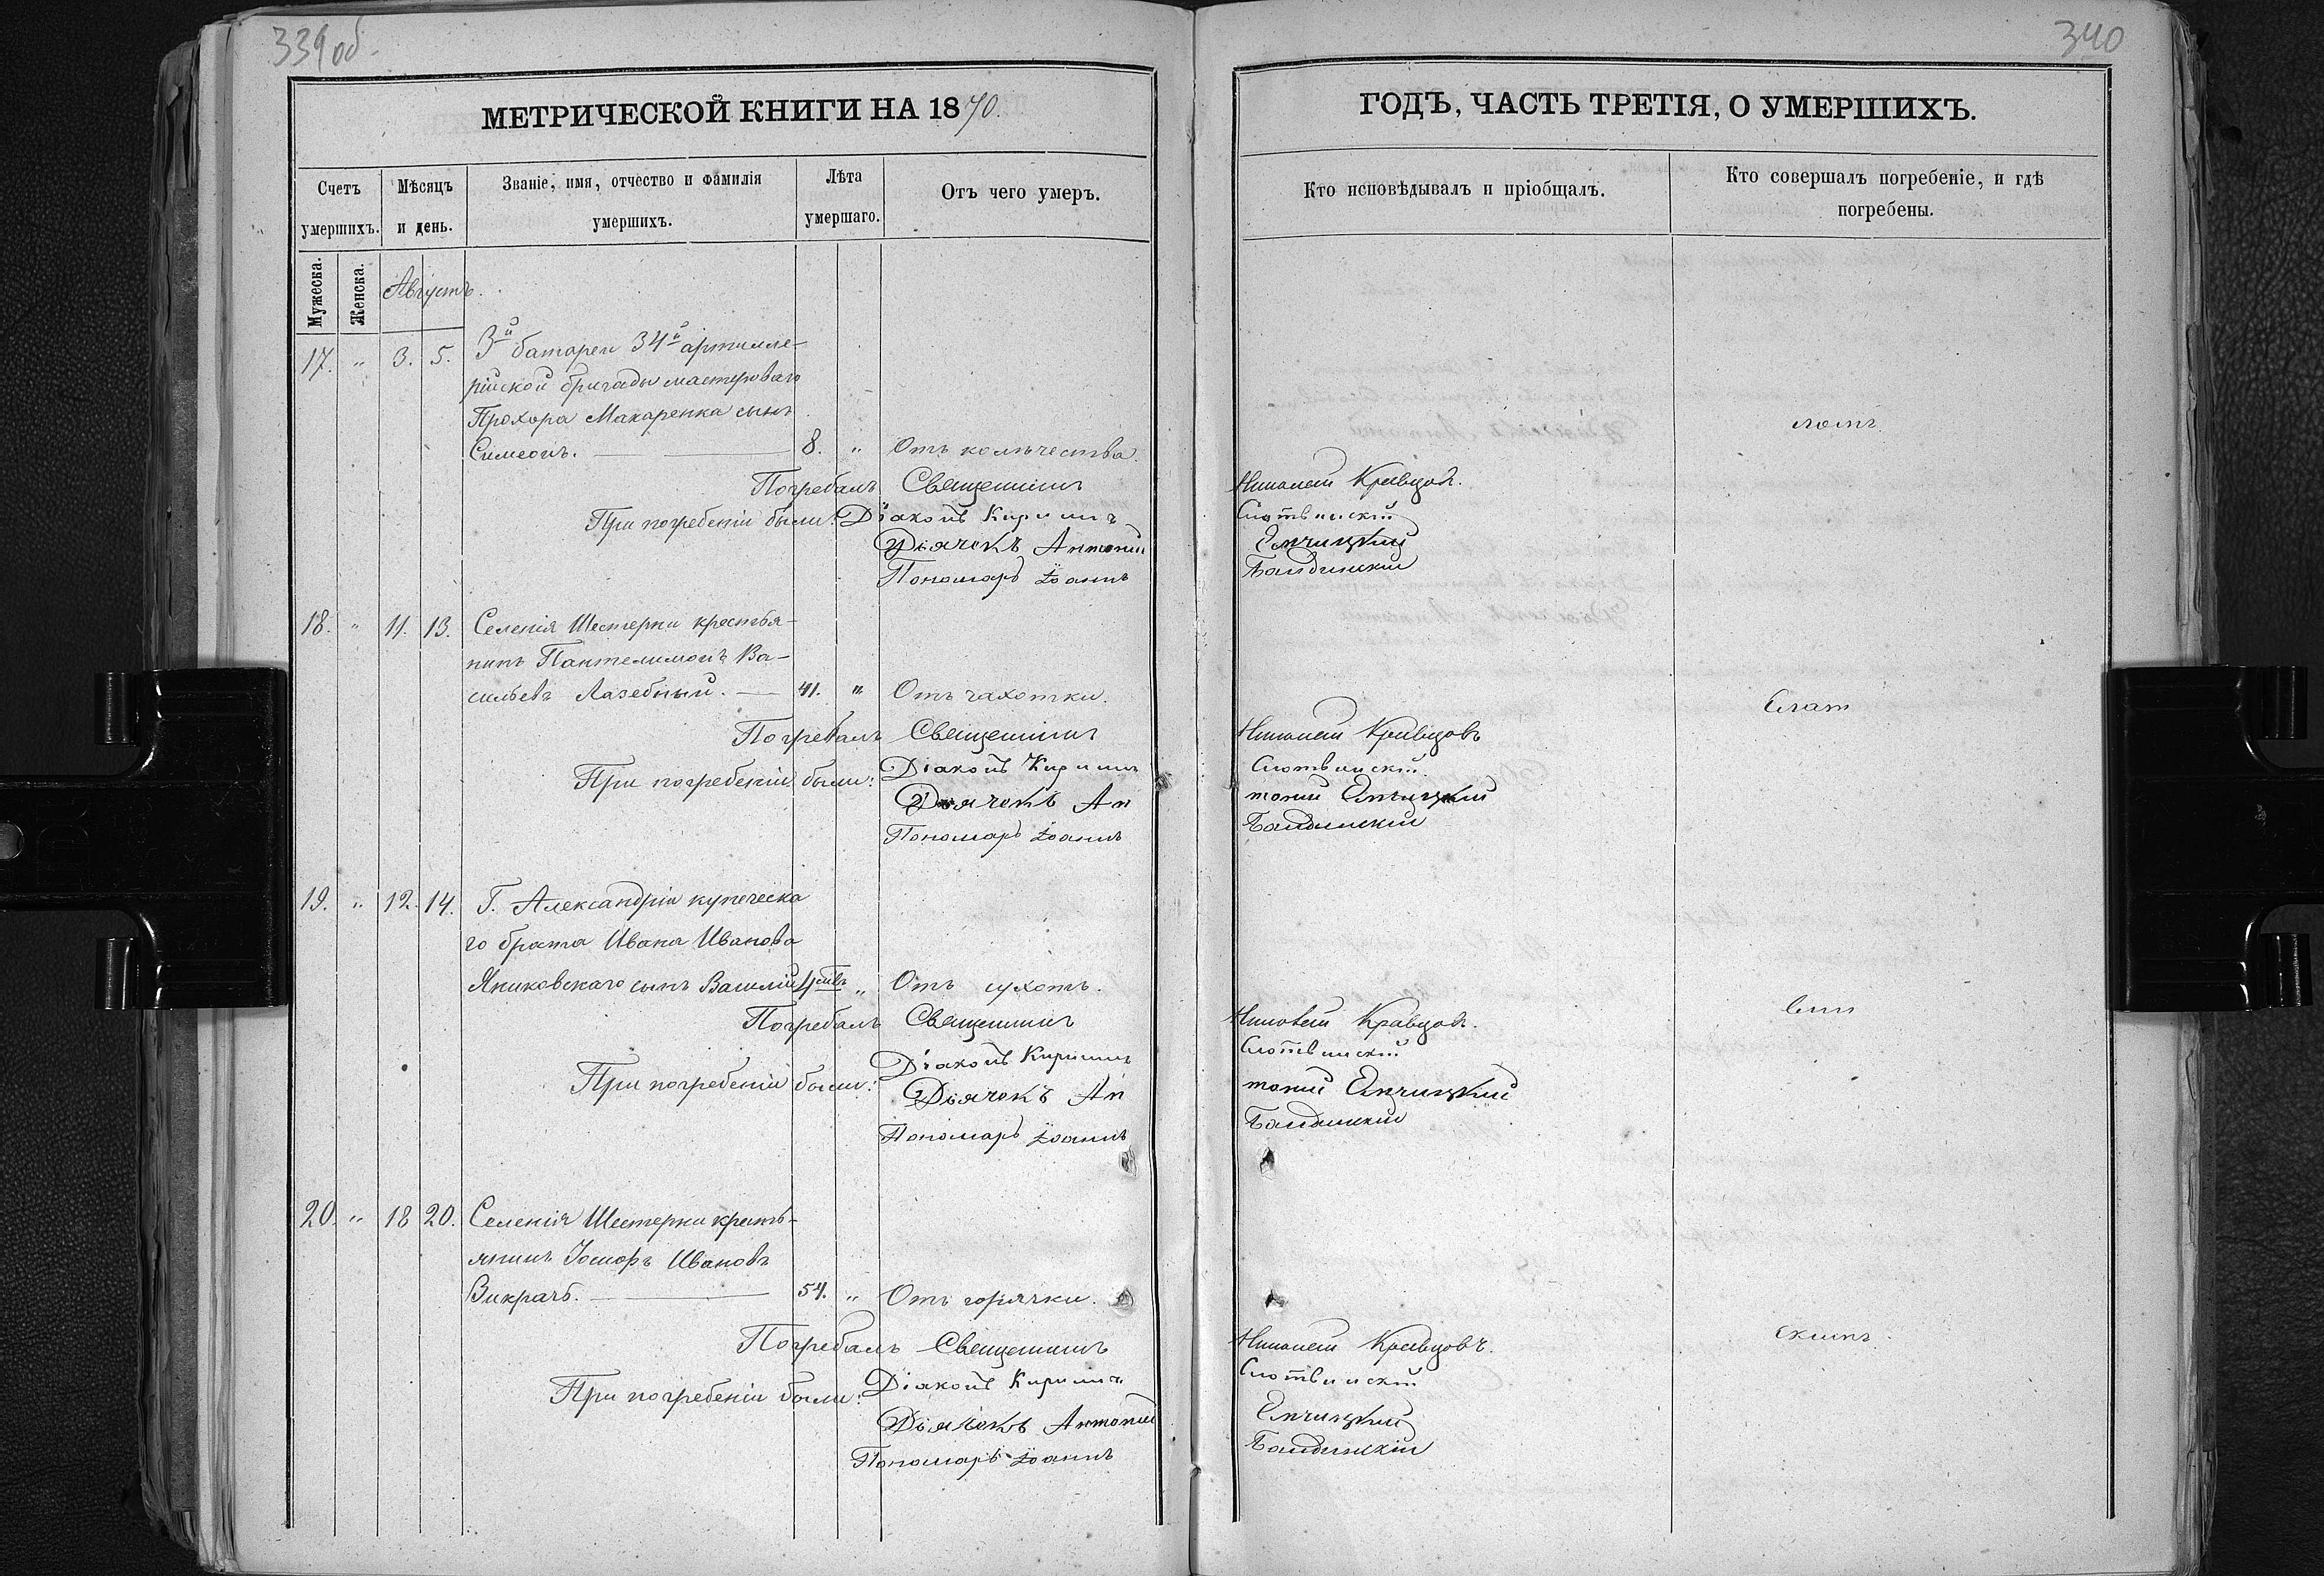 339 об.
340
МЕТРИЧЕСКОЙ КНИГИ НА 1870.
ГОДЪ, ЧАСТЬ ТРЕТІЯ, О УМЕРШИХЪ.
Счетъ умершихъ.
Мѣсяцъ и день.
Званіе, имя, отчество и фамилія умершихъ.
Лѣта умершаго.
Отъ чего умеръ.
Кто исповѣдывалъ и пріобщалъ.
Кто совершалъ погребеніе, и гдѣ погребены.
Мужеска.
Женска.
Августъ.
17. " 3. 5. 3й батареи 34й артилле-
рійской бригады мастероваго
Прохора Макаренка сынъ
Симеонъ. 8. " Отъ колѣчества.
Погребалъ Священникъ Николай Кравцов.
При погребеніи были: Діаконъ Кириллъ Слотвинскій
Дьячокъ Антоній Емчицкій
Пономарь Іоаннъ Бандинскій
18. " 11. 13. Селенія Шестерни крестья-
нинъ Пантелимонъ Ва-
сильевъ Лазебный. 41. " Отъ чахотки.
Погребалъ Священникъ Николай Кравцовъ
При погребеніи были: Діаконъ Кириллъ Слотвинскій
Дьячокъ Антоній Емчицкій
Пономарь Іоаннъ Бандинскій
19. " 12. 14. Г. Александріи купеческа
го брата Ивана Иванова
Яниковскаго сынъ Василій " Отъ сухотъ.
Погребалъ Священникъ Николай Кравцов.
При погребеніи были: Діаконъ Кириллъ Слотвинскій
Дьячокъ Антоній Емчицкій
Пономарь Іоаннъ Бандинскій
20. " 18 20. Селенія Шестерни кресть-
янинъ Іосифъ Ивановъ
Викрачъ. 54. " Отъ горячки.
Погребалъ Священникъ Николай Кравцовъ.
При погребеніи были: Діаконъ Кириллъ Слотвинскій
Дьячокъ Антоній Емчицкій
Пономарь Іоаннъ Бандинскій